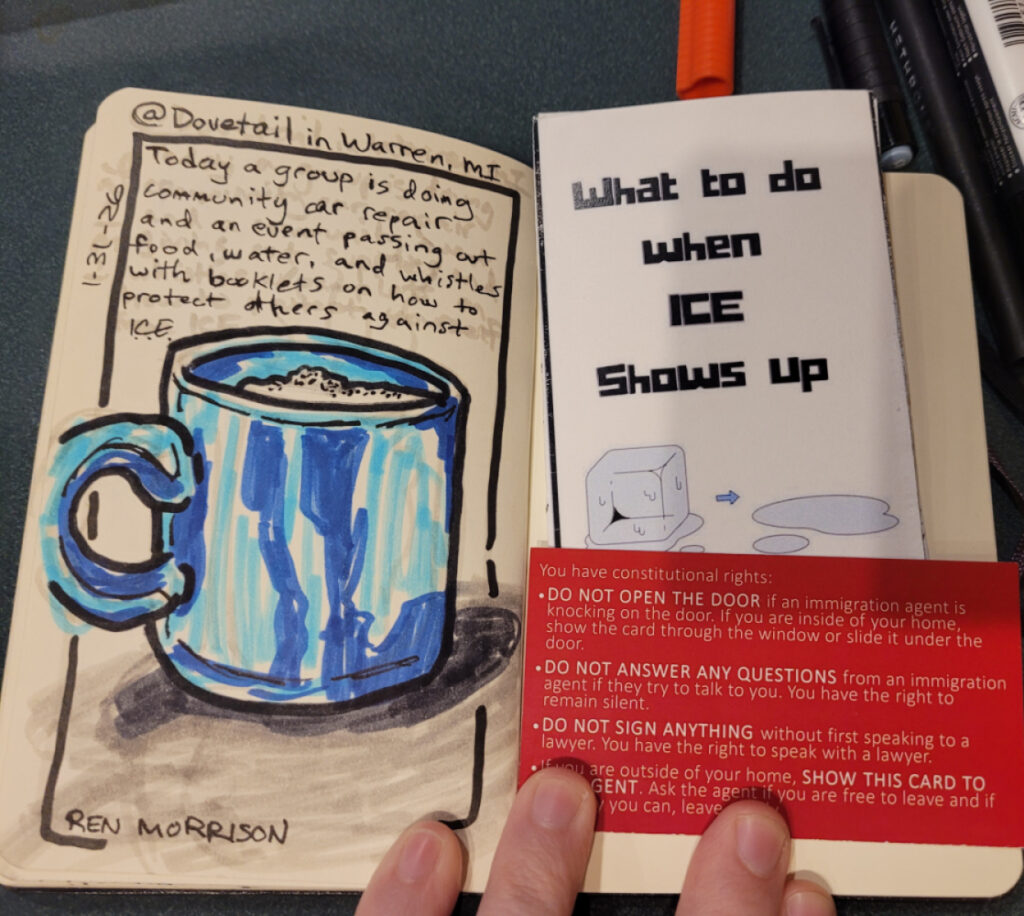 @Dovetail in Warren, MI
1-31-26
Today a group is doing
community car repair
and an event passing out
food, water, and whistles
with booklets on how to
protect others against
ICE.
REN MORRISON
What to do
when
ICE
Shows up
You have constitutional rights:
• DO NOT OPEN THE DOOR if an immigration agent is
knocking on the door. If you are inside of your home,
show the card through the window or slide it under the
door.
• DO NOT ANSWER ANY QUESTIONS from an immigration
agent if they try to talk to you. You have the right to
remain silent.
• DO NOT SIGN ANYTHING without first speaking to a
lawyer. You have the right to speak with a lawyer.
• If you are outside of your home, SHOW THIS CARD TO
GENT. Ask the agent if you are free to leave and if
y you can, leave